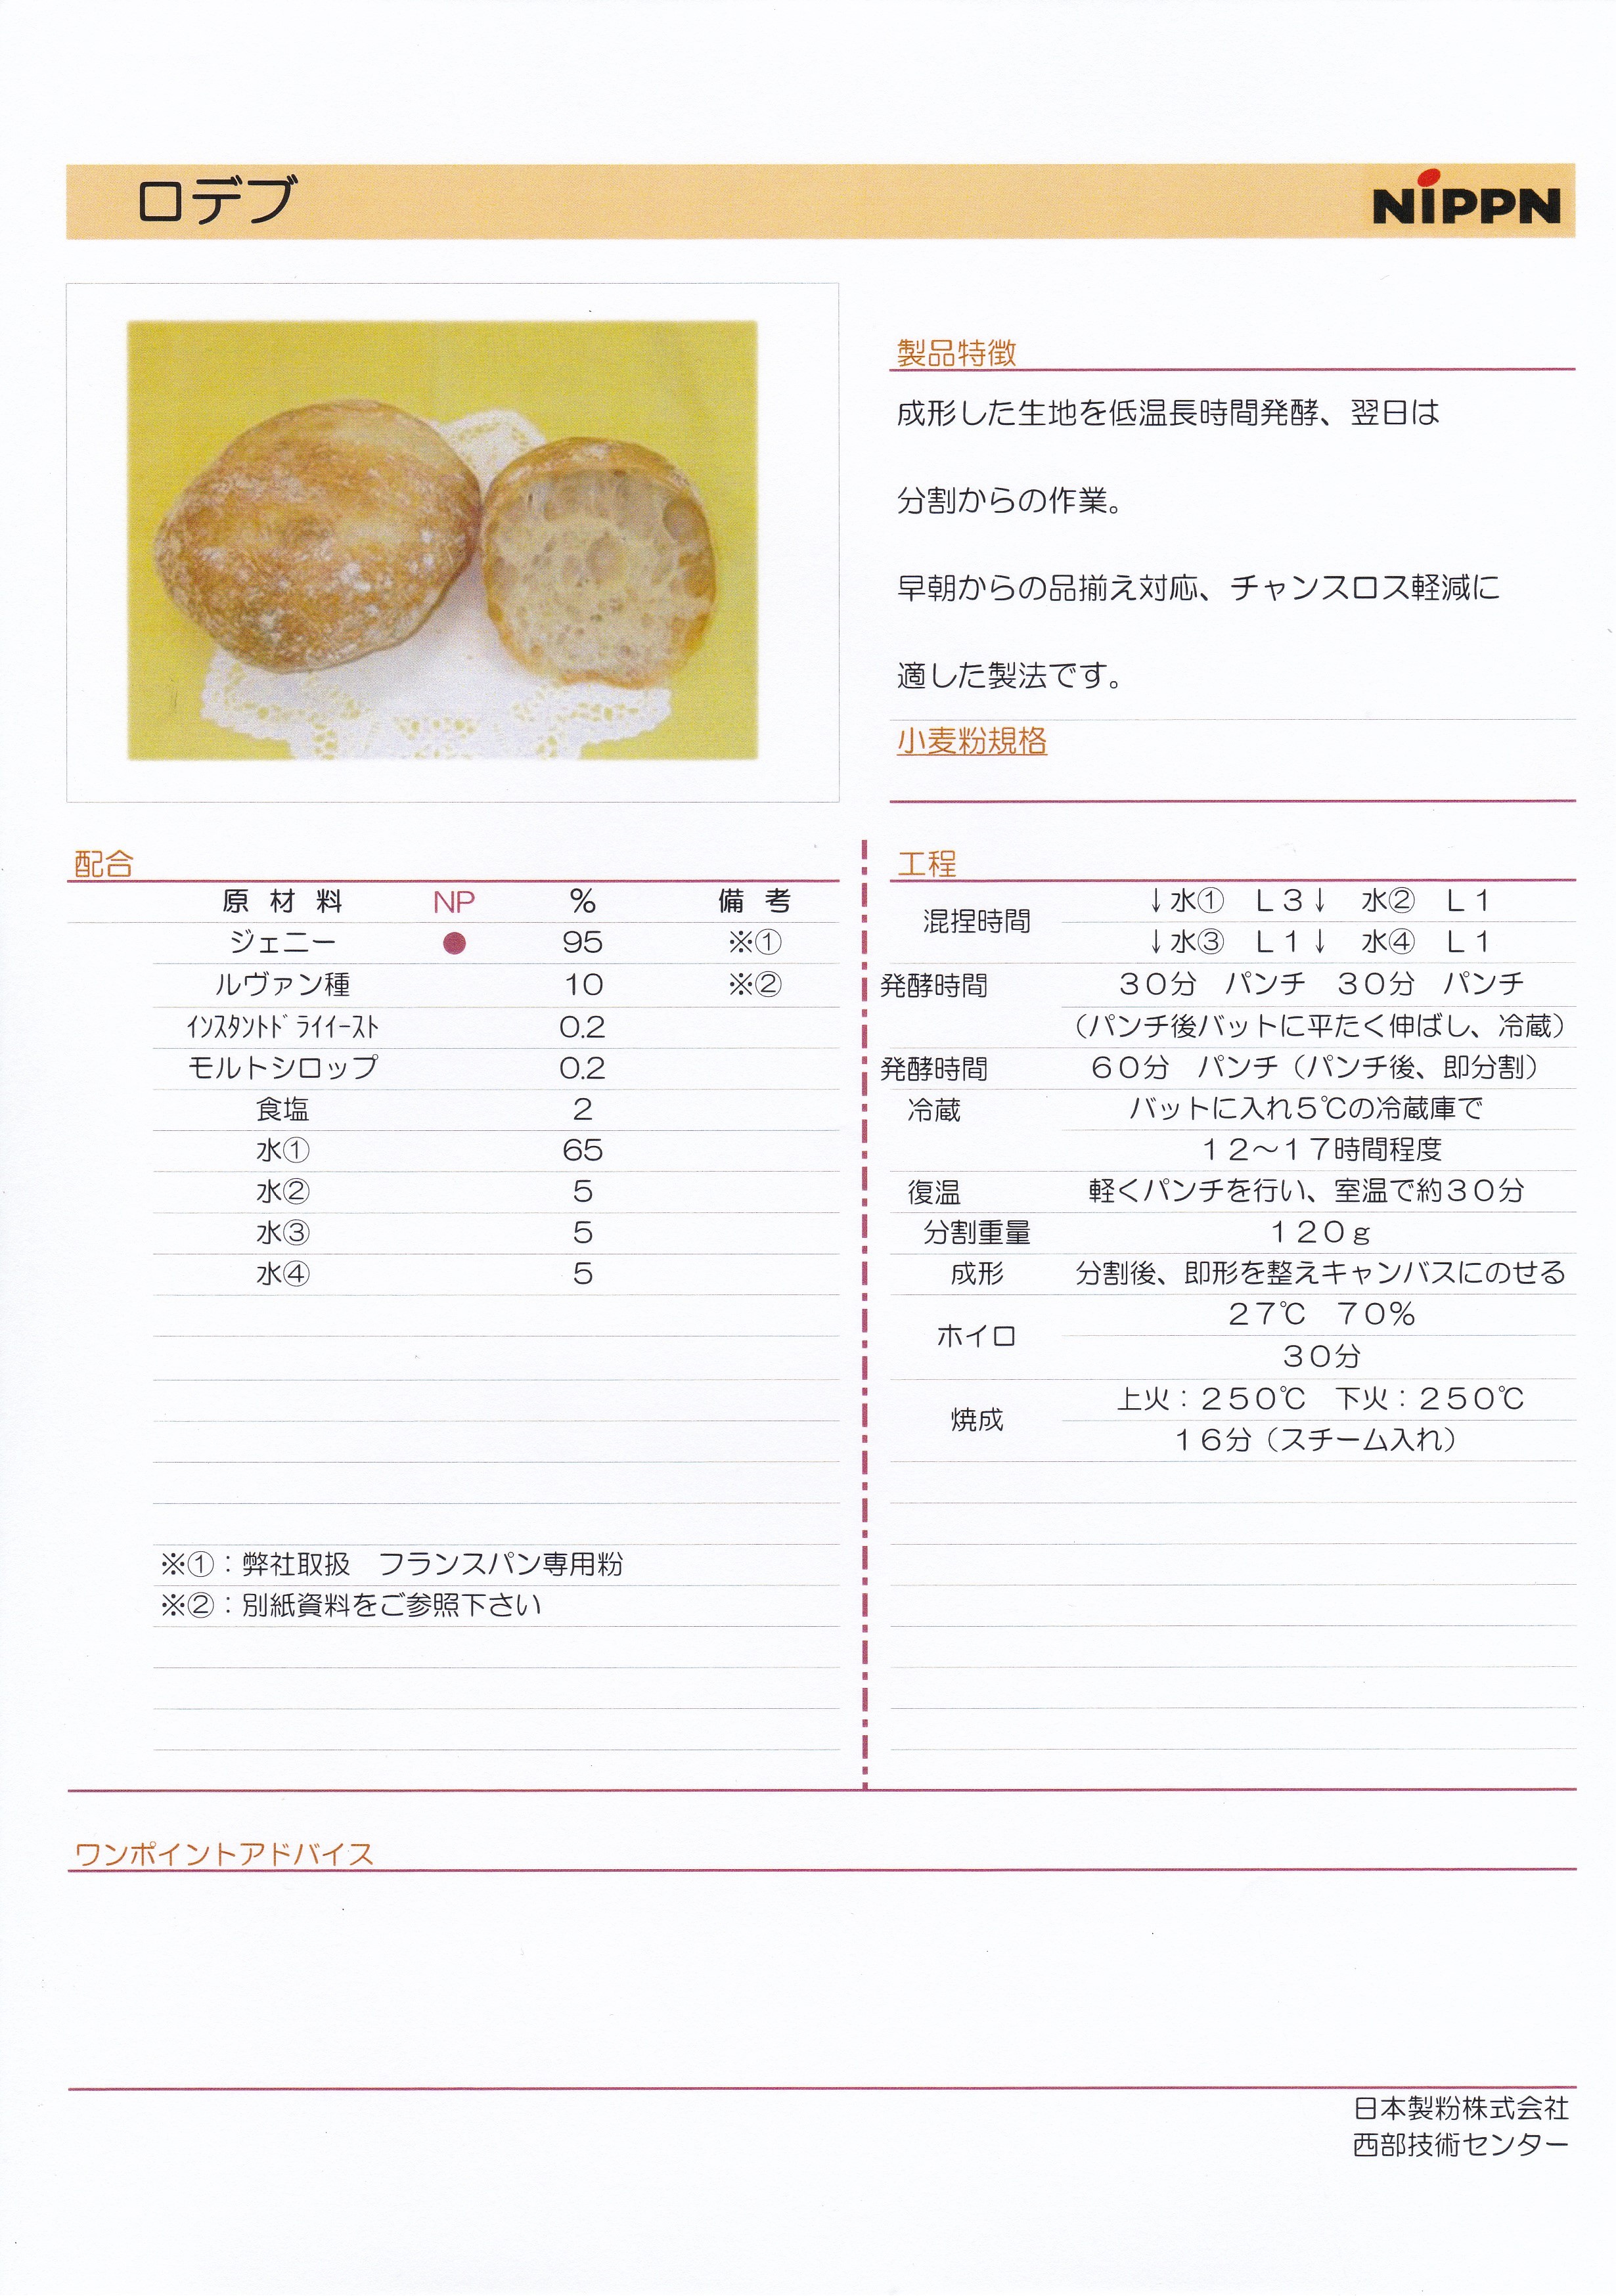 ロデブ
NIPPN
製品特徴
成形した生地を低温長時間発酵、翌日は
分割からの作業。
早朝からの品揃え対応、チャンスロス軽減に
適した製法です。
小麦粉規格
配合
原 材 料 NP % 備 考
ジェニー ● 95 ※①
ルヴァン種 10 ※②
ｲﾝｽﾀﾝﾄﾄﾞﾗｲｲｰｽﾄ 0.2
モルトシロップ 0.2
食塩 2
水① 65
水② 5
水③ 5
水④ 5
※①：弊社取扱 フランスパン専用粉
※②：別紙資料をご参照下さい
工程
混捏時間 ↓水① Ｌ３↓ 水② Ｌ１
↓水③ Ｌ１↓ 水④ Ｌ１
発酵時間 ３０分 パンチ ３０分 パンチ
（パンチ後バットに平たく伸ばし、冷蔵）
発酵時間 ６０分 パンチ（パンチ後、即分割）
冷蔵 バットに入れ５℃の冷蔵庫で
１２～１７時間程度
復温 軽くパンチを行い、室温で約３０分
分割重量 １２０ｇ
成形 分割後、即形を整えキャンバスにのせる
ホイロ ２７℃ ７０％
３０分
焼成 上火：２５０℃ 下火：２５０℃
１６分（スチーム入れ）
ワンポイントアドバイス
日本製粉株式会社
西部技術センター